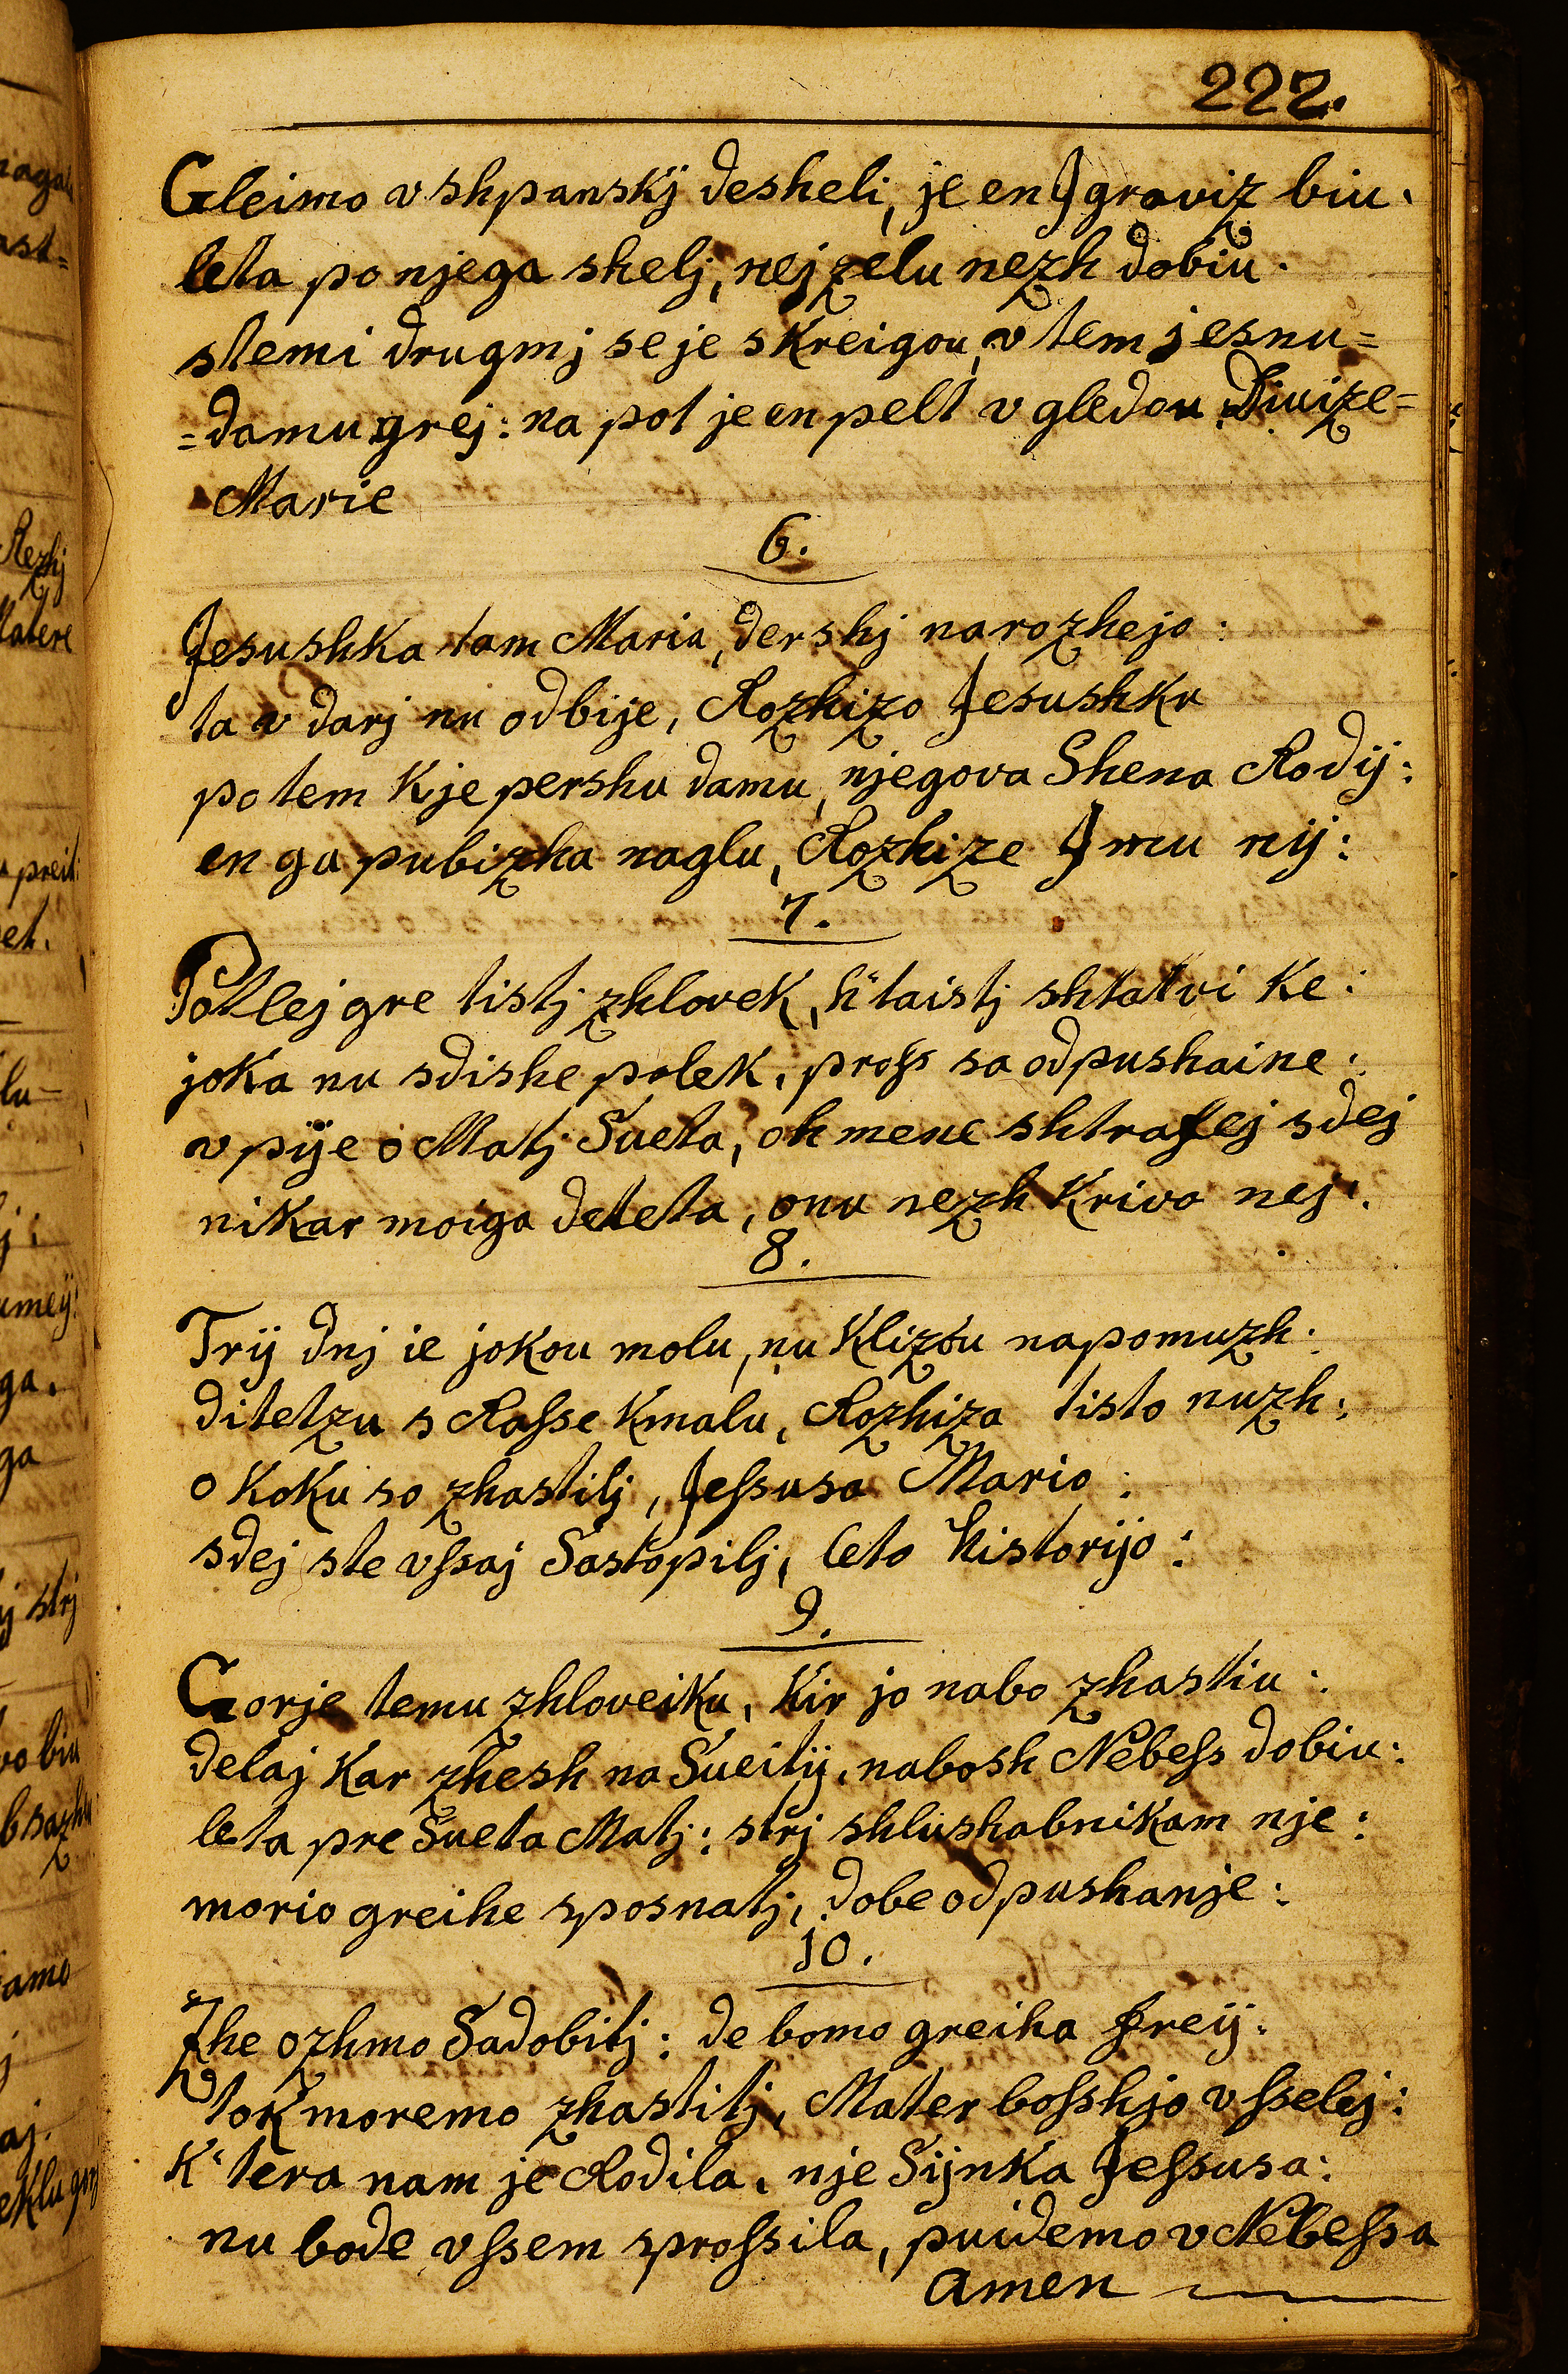 222.
Gleimo v shpanskj desheli, je en Jgraviz biu.
leta po njega shelj, nej zelu nezh dobiu.
stemi drugmj se je skreigou, v tem jesnu=
=damu grej: na pot je en pelt v gledou Divize=
Marie
6.
Jesushka tam Maria, dershj narozhejo:
ta v darj nu odbije, Rozhizo Jesushku
potem kje pershu damu, njegova Shena Rodij:
en ga pubizha naglu, Rozhize Jmu nij:
7.
Potlej gre tistj zhlovek, h'taistj shtatvi ke:
joka nu sdishe polek, pross sa odpushaine:
v pije o Matj Sueta, oh mene shtrafej sdej
nikar moiga deteta, onu nezh krivo nej:
8.
Trij dnj ie jokou molu, nu klizou napomuzh:
ditetzu s Rasse kmalu, Rozhiza tisto nuzh:
o koku so zhastilj, Jessusa Mario:
sdej ste vssaj Sastopilj, leto historijo:
9.
Gorje temu zhloveiku, kir jo nabo zhastiu:
delaj kar zhesh na Sueitij, nabosh Nebess dobiu:
leta pre Sueta Matj: strj shlushabnikam nje:
morio greihe sposnatj, dobe odpushanje:
10.
Zhe ozhmo Sadobitj: de bomo greiha freij:
tok moremo zhastitj, Mater bosshjo v sselej:
K'tera nam je Rodila, nje Sijnka Jessusa:
nu bode vssem sprossila, puidemo v Nebessa
amen